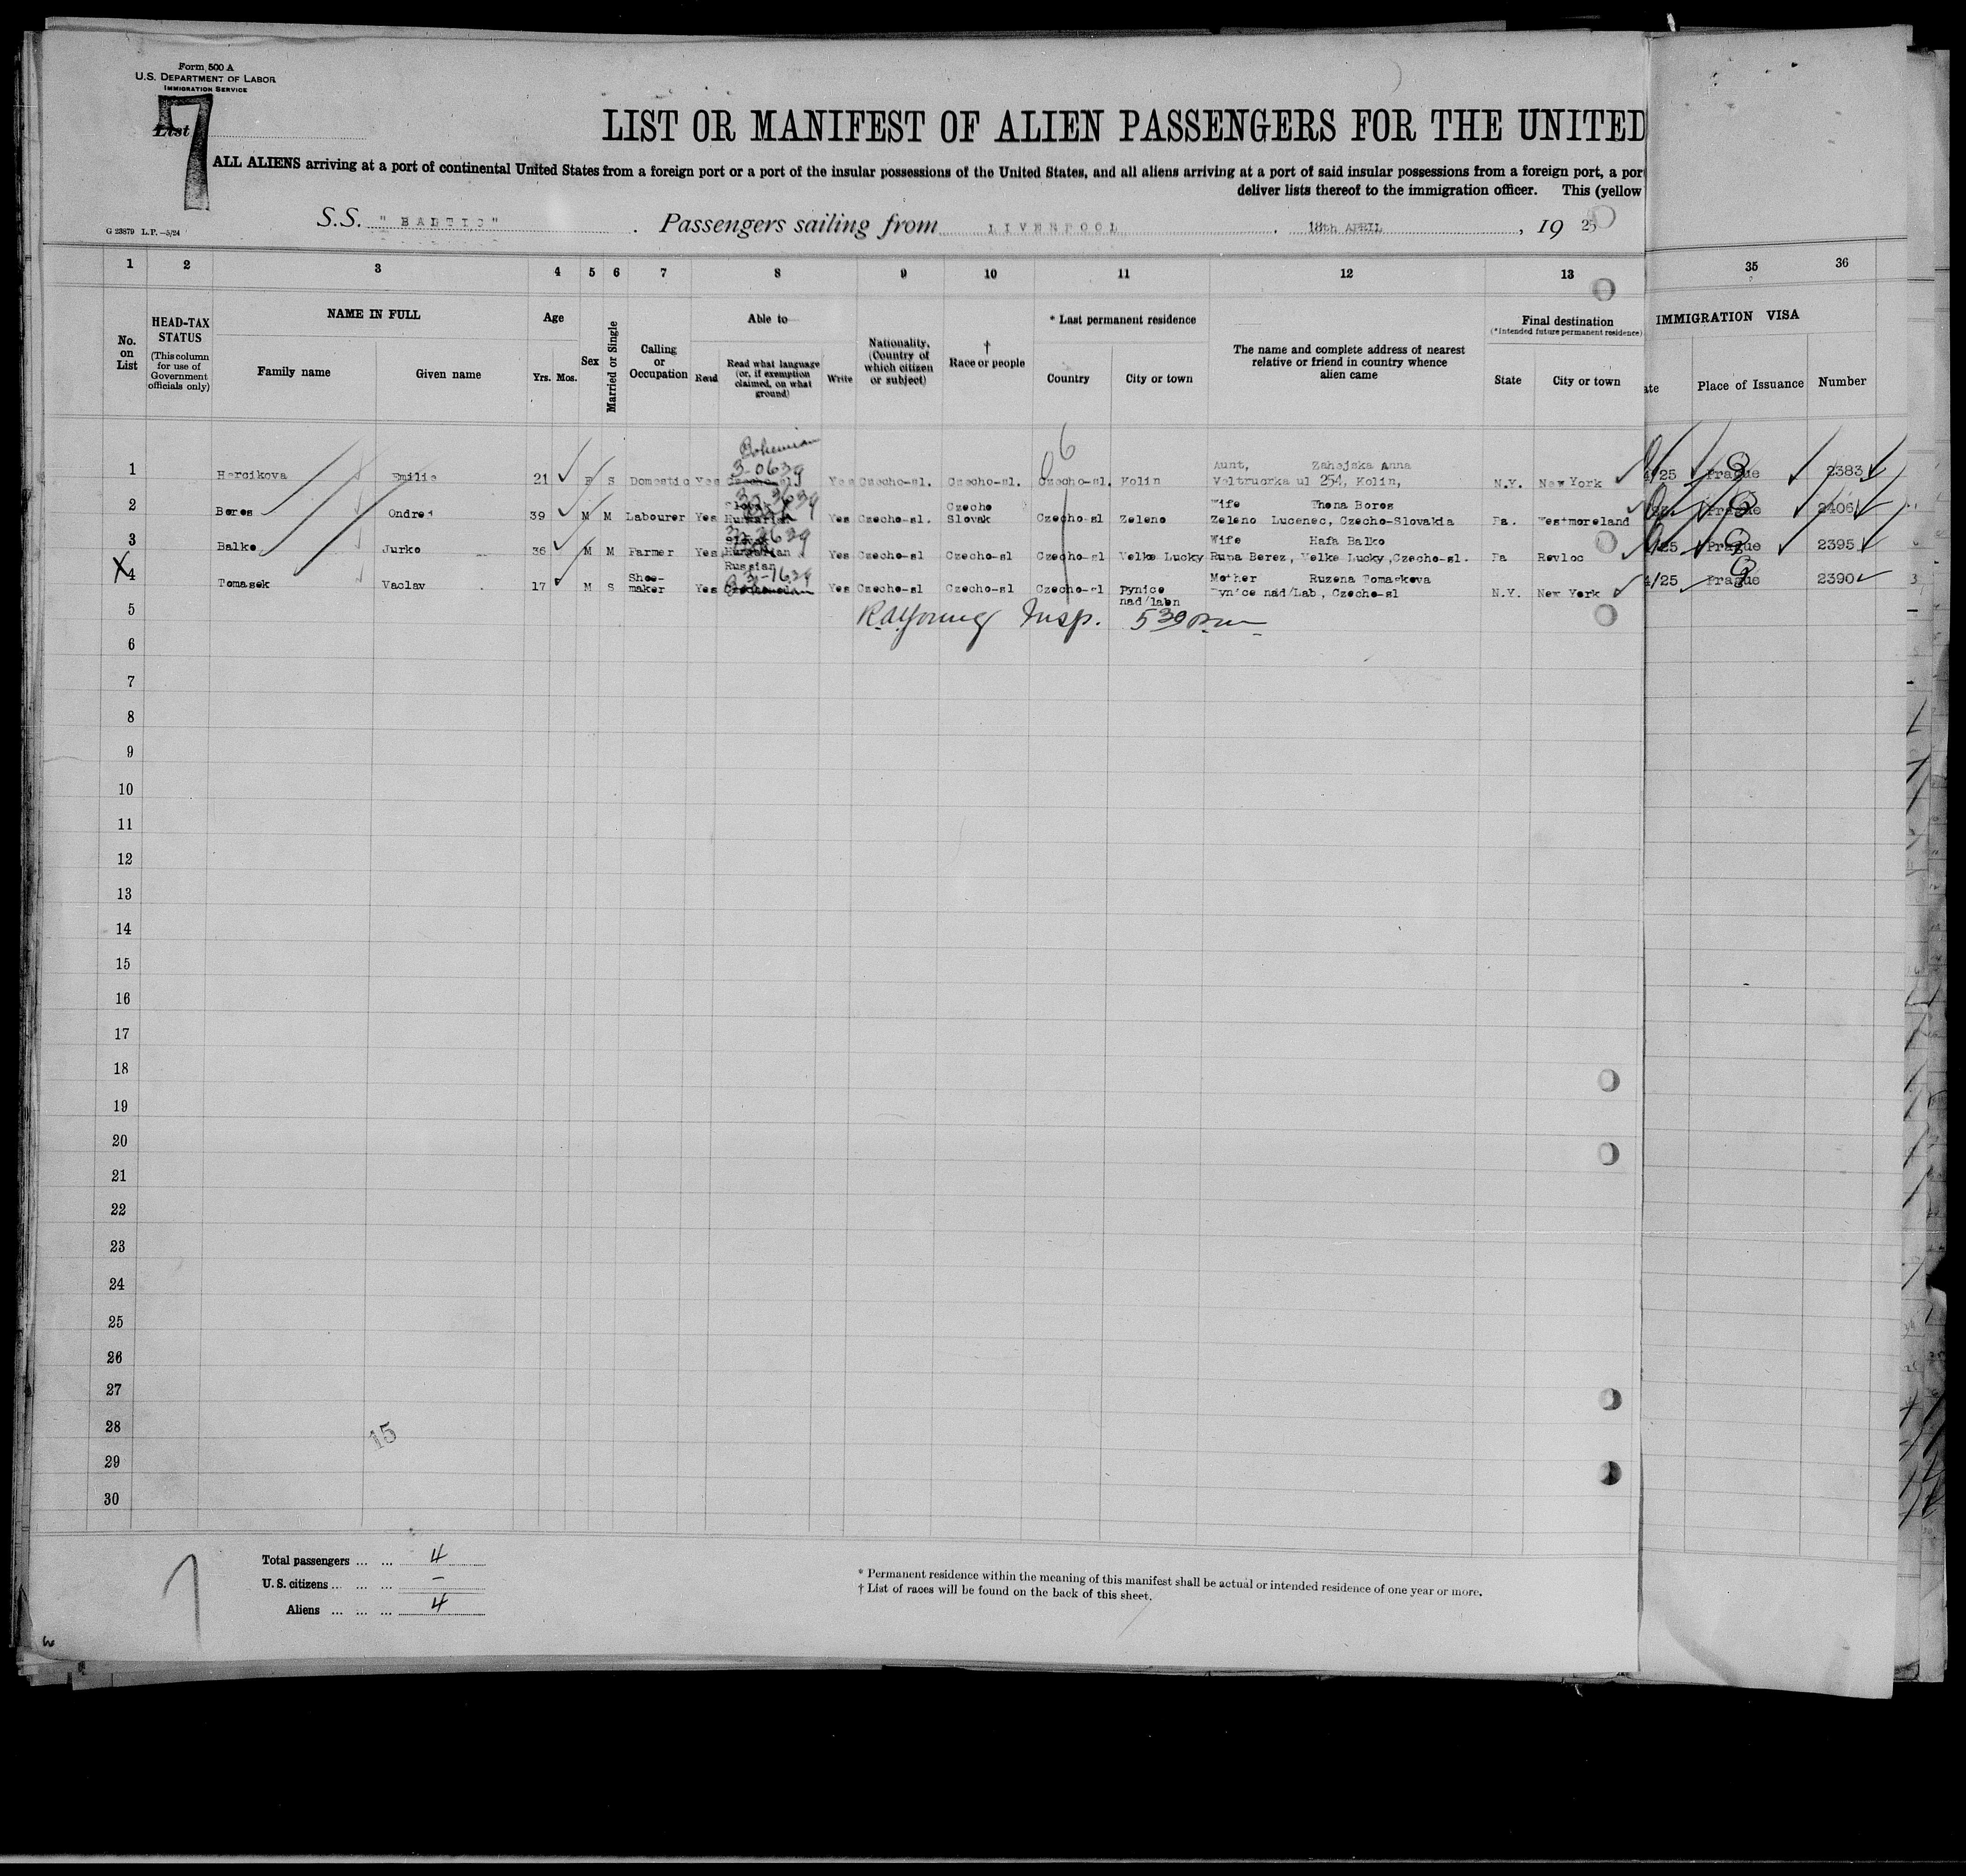 Form 500 A
U.S. DEPARTMENT OF LABOR
IMMIGRATION SERVICE
List 7
LIST OR MANIFEST OF ALIEN PASSENGERS FOR THE UNITED
ALL ALIENS arriving at a port of continental United States from a foreign port or a port of the insular possessions of the United States, and all aliens arriving at a port of said insular possessions from a foreign port, a por
deliver lists thereof to the immigration officer. This (yellow
G 23879 L.P.—5/24
S.S. "BALTIC" Passengers sailing from LIVERPOOL, 18th APRIL, 1925
1 2 3 4 5 6 7 8 9 10 11 12 13 35 36
No. on List
HEAD-TAX STATUS
(This column for use of Government officials only)
NAME IN FULL
Family name
Given name
Age
Yrs. Mos.
Sex
Married or Single
Calling or Occupation
Able to
Read
Read what language (or, if exemption claimed, on what ground)
Write
Nationality. (Country of which citizen or subject)
† Race or people
* Last permanent residence
Country
City or town
The name and complete address of nearest relative or friend in country whence alien came
Final destination
(*Intended future permanent residence)
State
City or town
IMMIGRATION VISA
ate
Place of Issuance
Number
Bohemian
3-0639
1 Horcikova Emilie 21 F S Domestic Yes Czecho-sl Yes Czecho-sl. Czecho-sl. Czecho-sl. Kolin Aunt, Zahejska Anna
Veltruorka ul 254, Kolin, N.Y. New York 4/25 Prague 2383
2 Bores Ondrej 39 M M Labourer Yes Slovak Hungarian Yes Czecho-sl. Czecho Slovak Czecho-sl Zeleno Wife Thona Boros
Zeleno Lucenec, Czecho-Slovakia Pa. Westmoreland Prague 2406
3 Balko Jurko 36 M M Farmer Yes Hungarian Yes Czecho-sl Czecho-sl Czecho-sl Velke Lucky Wife Hafa Balko
Runa Berez, Velke Lucky, Czecho-sl. Pa Revloc /25 Prague 2395
Russian
X 4 Tomasek Vaclav 17 M S Shoe-maker Yes 3-1639 Yes Czecho-sl Czecho-sl Czecho-sl Pynice nad/labn Mother Ruzena Tomaskova
Tynice nad/Lab, Czecho-sl N.Y. New York 4/25 Prague 2390
5 R A Young Insp. 5 30 pm
6
7
8
9
10
11
12
13
14
15
16
17
18
19
20
21
22
23
24
25
26
27
28
15
29
30
Total passengers ... ... 4
U.S. citizens ... ... ... –
Aliens ... ... ... 4
* Permanent residence within the meaning of this manifest shall be actual or intended residence of one year or more.
† List of races will be found on the back of this sheet.